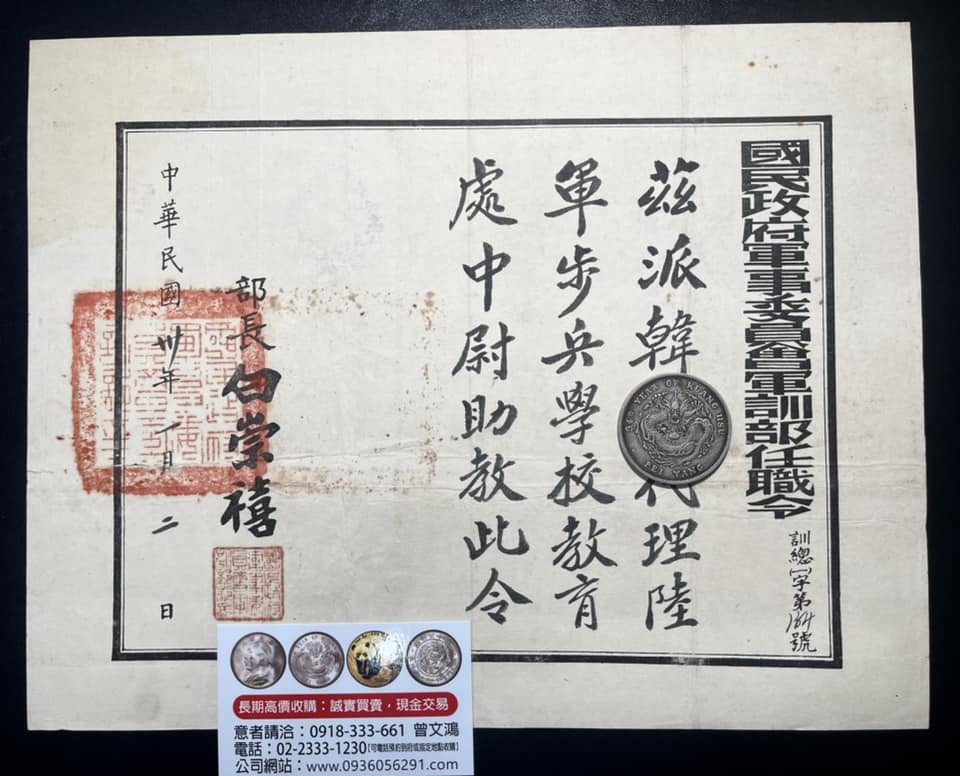 國民政府軍事委員會軍訓部任職令
訓總(一)字第 號
茲派韓 代理陸
軍步兵學校教育
處中尉助教此令
部長白崇禧
中華民國卅年一月二日
PEI YANG
長期高價收購：誠實買賣，現金交易
意者請洽：0918-333-661 曾文鴻
電話：02-2333-1230【可電話預約到府或指定地點收購】
公司網站：www.0936056291.com